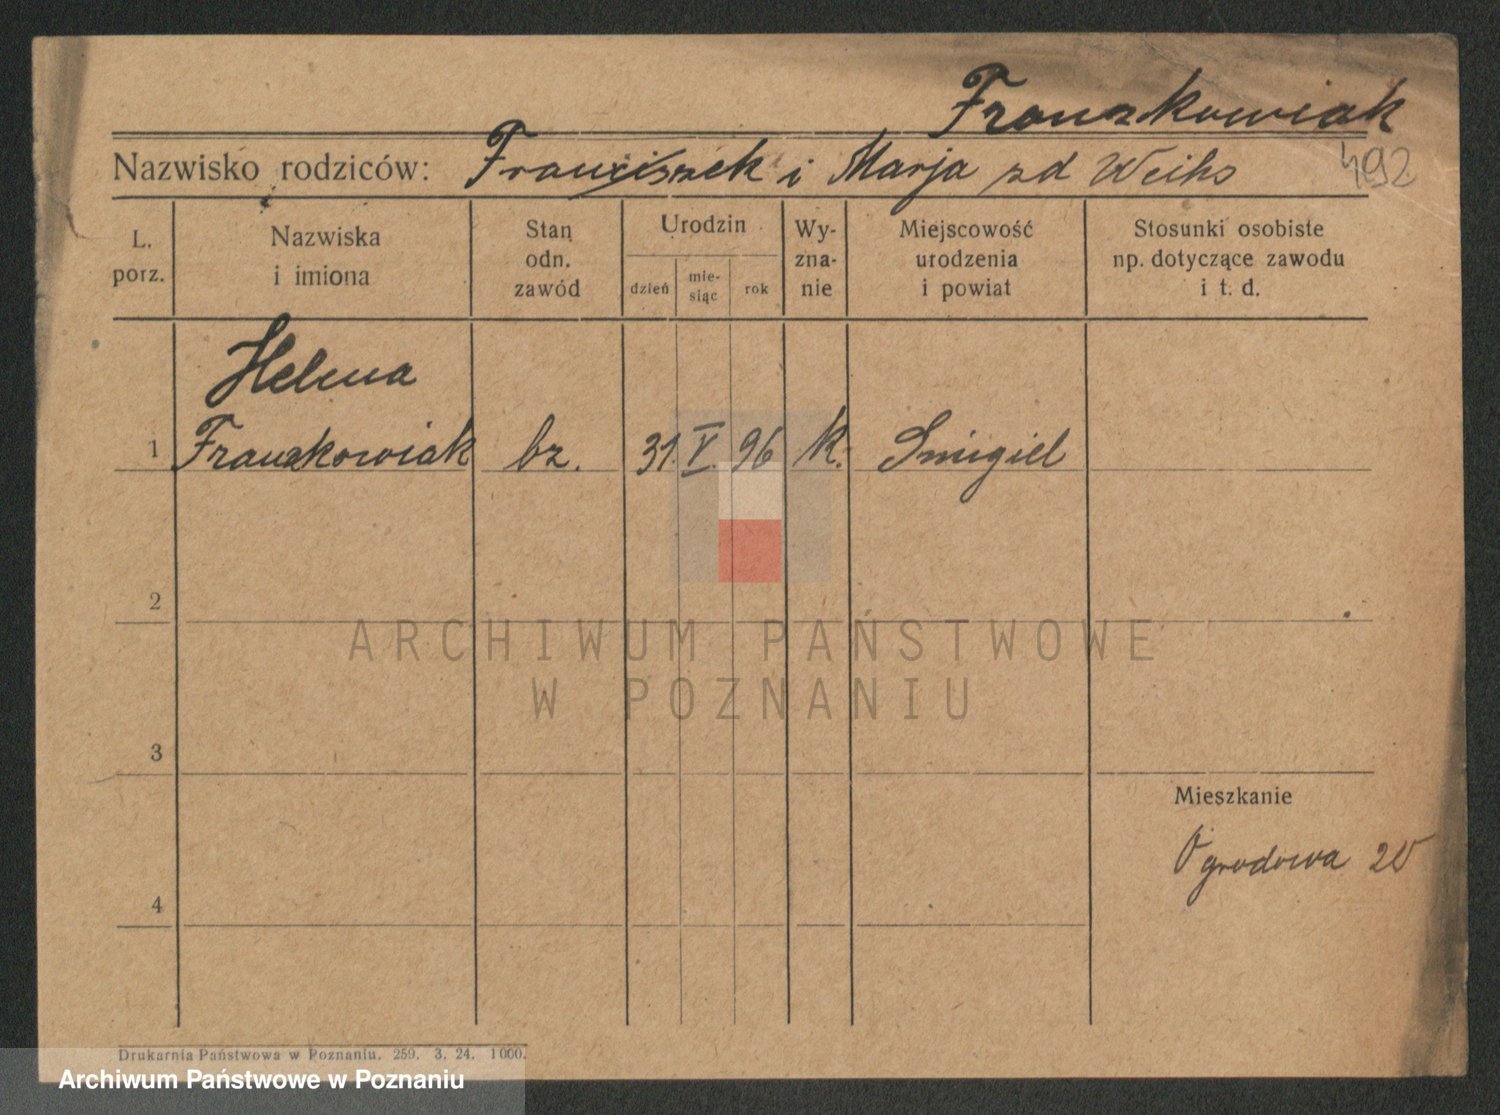 Franzkowiak
Nazwisko rodziców: Franciszek i Marja zd Weihs
492
L. porz.
Nazwiska i imiona
Stan odn. zawód
Urodzin
dzień
mie-siąc
rok
Wy-zna-nie
Miejscowość urodzenia i powiat
Stosunki osobiste np. dotyczące zawodu i t. d.
Helena
1 Franzkowiak bz. 31. V. 96 k. Smigiel
2
ARCHIWUM PAŃSTWOWE
W POZNANIU
3
Mieszkanie
Ogrodowa 20
4
Drukarnia Państwowa w Poznaniu. 259. 3. 24. 1000.
Archiwum Państwowe w Poznaniu